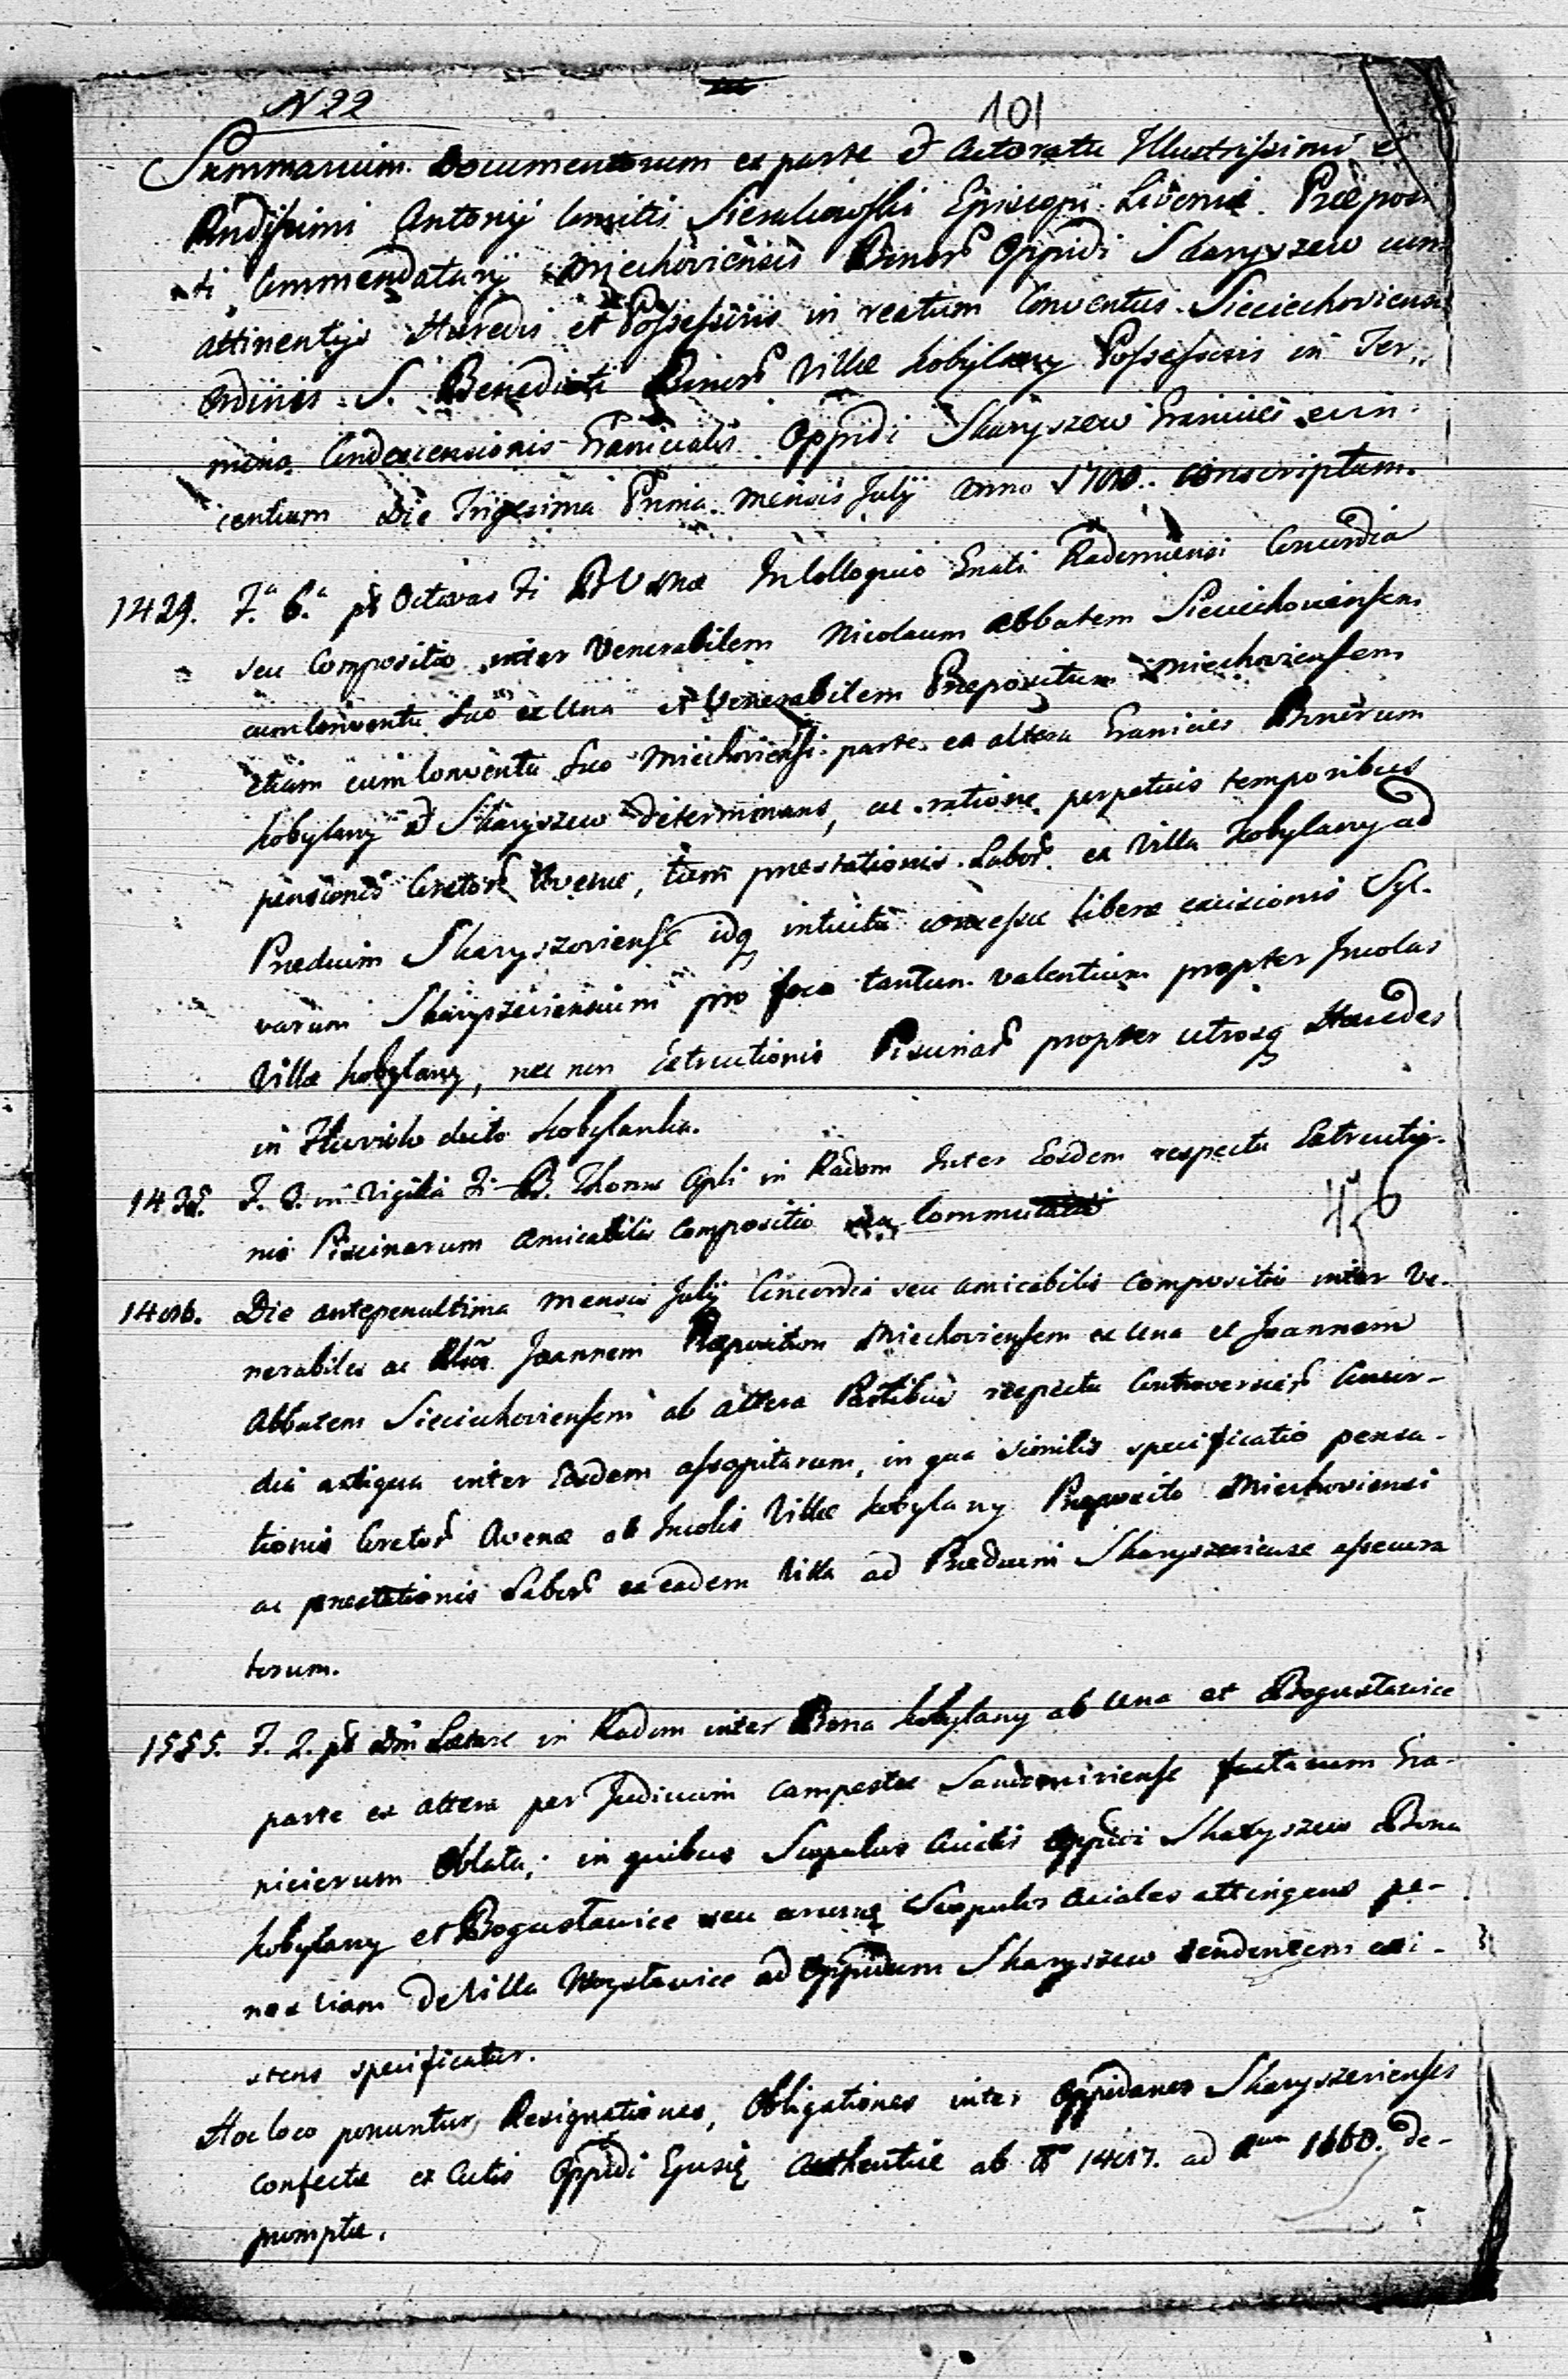 N 22
101
Summarium Documentorum ex parte et Actoratu Illustrissimi et
Rndissimi Antonij Comitis Sierakowski Episcopi Livoniæ Præposi
ti Commendatarij Miechoviensis Bonor Oppidi Skaryszew cum
attinentijs Hæredis et Possessoris in reatum Conventus Sieciechoviensis
Ordinis S. Benedicti Bonor Villæ Kobylany Possessoris in Ter-
mino Condescensionis Granicialis Oppidi Skaryszew Granicies evin-
centium Die Trigesima Prima mensis Julij Anno conscriptum.
1429. F.a 6.a pt Octavas Fi BV Mæ In Colloquio Gnali Radomiensi Concordia
seu Compositio inter Venerabilem Nicolaum Abbatem Sieciechoviensem
cum Conventu Suo ex una et Venerabilem Præpositum Miechoviensem
etiam cum Conventu Suo Miechoviensi parte ex altera Granicies Bonorum
Kobylany et Skaryszew determinans, ac ratione perpetuis temporibus
pensionis Coretor Avenæ, tum præstationis Labor ex Villa Kobylany ad
Prædium Skaryszoviense idq intuitu concessæ liberæ excisionis Syl-
varum Skaryszeviensium pro foco tantum valentium propter Incolas
Villæ Kobylany, nec non Extructionis Piscinar propter utrosq Hæredes
in Fluvio dicto Kobylanka.
F. in Vigilia Fi B. Thomæ Apli in Radom Inter Eosdem respectu Extructio-
nis Piscinarum Amicabilis Compositio
Die antepenultima mensis Julij Concordia seu amicabilis compositio inter Ve-
nerabiles ac Joannem Præpositum Miechoviensem ex una et Joannem
Abbatem Sieciechoviensem ab altera Partibus respectu Controversiar Concor-
dia antiqua inter Eosdem assopitarum, in qua similis specificatio pensa-
tionis Coretor Avenæ ab Incolis Villæ Kobylany Præposito Miechoviensi
ac præstationis Labor ex eadem Villa ad Prædium Skaryszeviense assecura
torum.
1555. F. 2. pt Dm Lætare in Radom inter Bona Kobylany ab una et Bogusławice
parte ex altera per Judicium Campestre Sandomiriense factarum Gra-
niciarum Oblata; in quibus Scopulus Acialis Oppidi Skaryszew Bona
Kobylany et Bogusławice seu Scopulos Aciales attingens pe-
nes Viam de Villa Woysławice ad Oppidum Skaryszew tendentem exi-
stens specificatur.
Hoc loco ponuntur Resignationes, Obligationes inter Oppidanos Skaryszevienses
confectæ ex Actis Oppidi Ejusq Authenticè ab ad 1660. de-
promptæ.